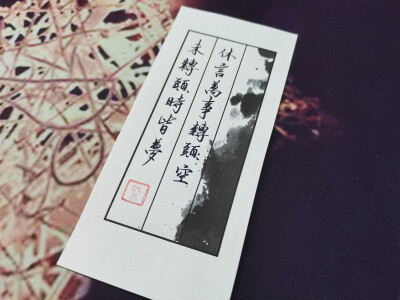 休言萬事轉頭空
未轉頭時皆夢